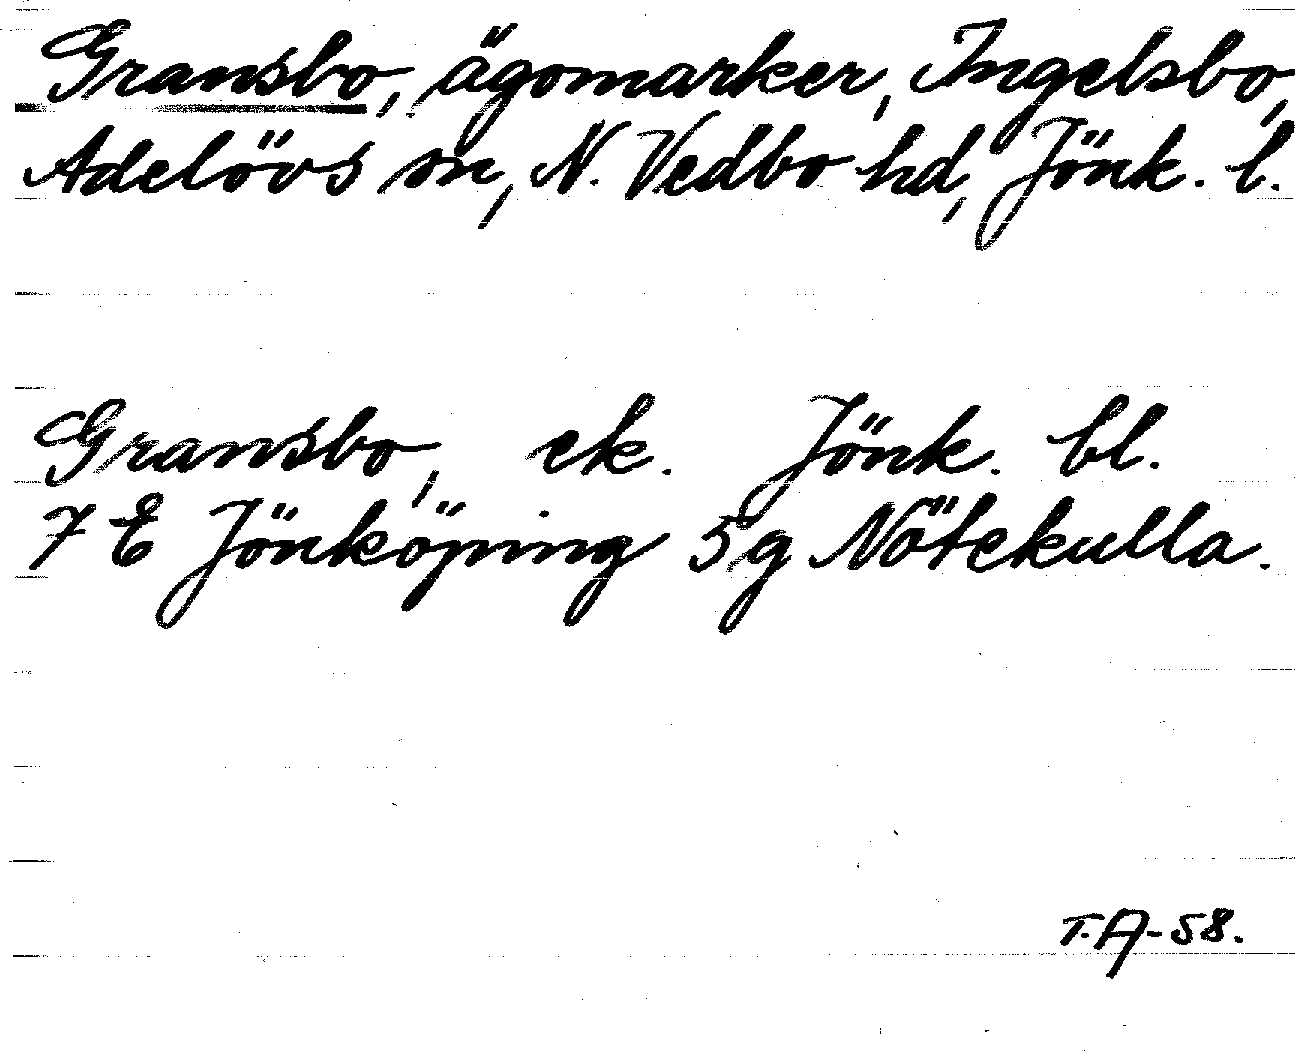 Gransbo, ägomarker, Ingelsbo,
Adelövs sn, N. Vedbo hd, Jönk. l.
Gransbo, ek. Jönk. bl.
7 E Jönköping 5g Nötekulla.
T.A-58.